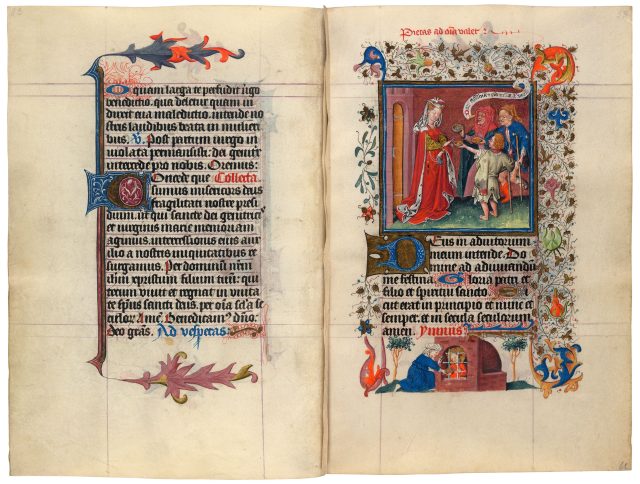 O quam larga te perfudit uirgo
benedictio. qua deletur quam in
duxit eua maledictio. intende no
stras laudibus beata in mulieri
bus. V. Post partum uirgo in
uiolata permansisti: dei genitrix
intercede pro nobis. Oremus:
Concede que Collecta
sumus misericors deus
fragilitati nostre presi
dium. ut qui sancte dei genitricis
et uirginis marie memoriam
agimus. intercessionis eius aux
ilio a nostris iniquitatibus re
surgamus. Per dominum nrm
ihm xpristum filium tuum: qui
tecum uiuit et regnat in unita
te spus sancti deus. per oia scla se
culor Ame. Benedicam9 dno.
Deo gras. Ad vesperas
Pietas ad valet
Deus in adiutorium
meum intende. Do
mine ad adiuuandu
me festina. Gloria patri et
filio et spiritui sancto.
cut erat in principio et nunc et
semper. et in secula seculorum
amen. Ymnus: